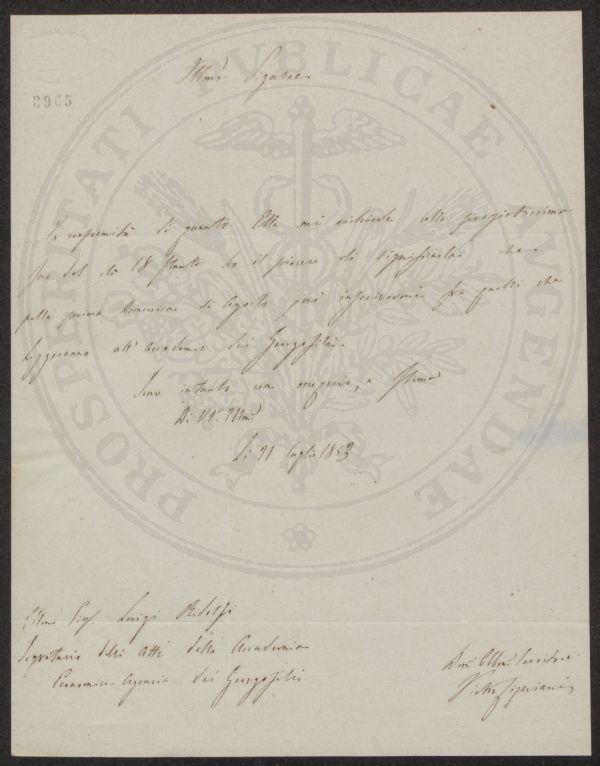 PROSPERITATI PUBLICAE AUGENDAE
2905
Illmo Signore
In conformità di quanto Ella mi richiede alla pregiatissima
sua del dì 18 stante ho il piacere di significarle che
nella prima Domenica di Agosto può inscrivermi fra quelli che
leggeranno all'Accademia dei Georgofili.
Sono intanto con ossequio, e stima
Di VS. Illma
Li 21 luglio 1853
Illmo Sigr Luigi Ridolfi
Segretario delli Atti della Accademia
Economico Agraria dei Georgofili
Devo Obbmo Servitore
Pietro Cipriani